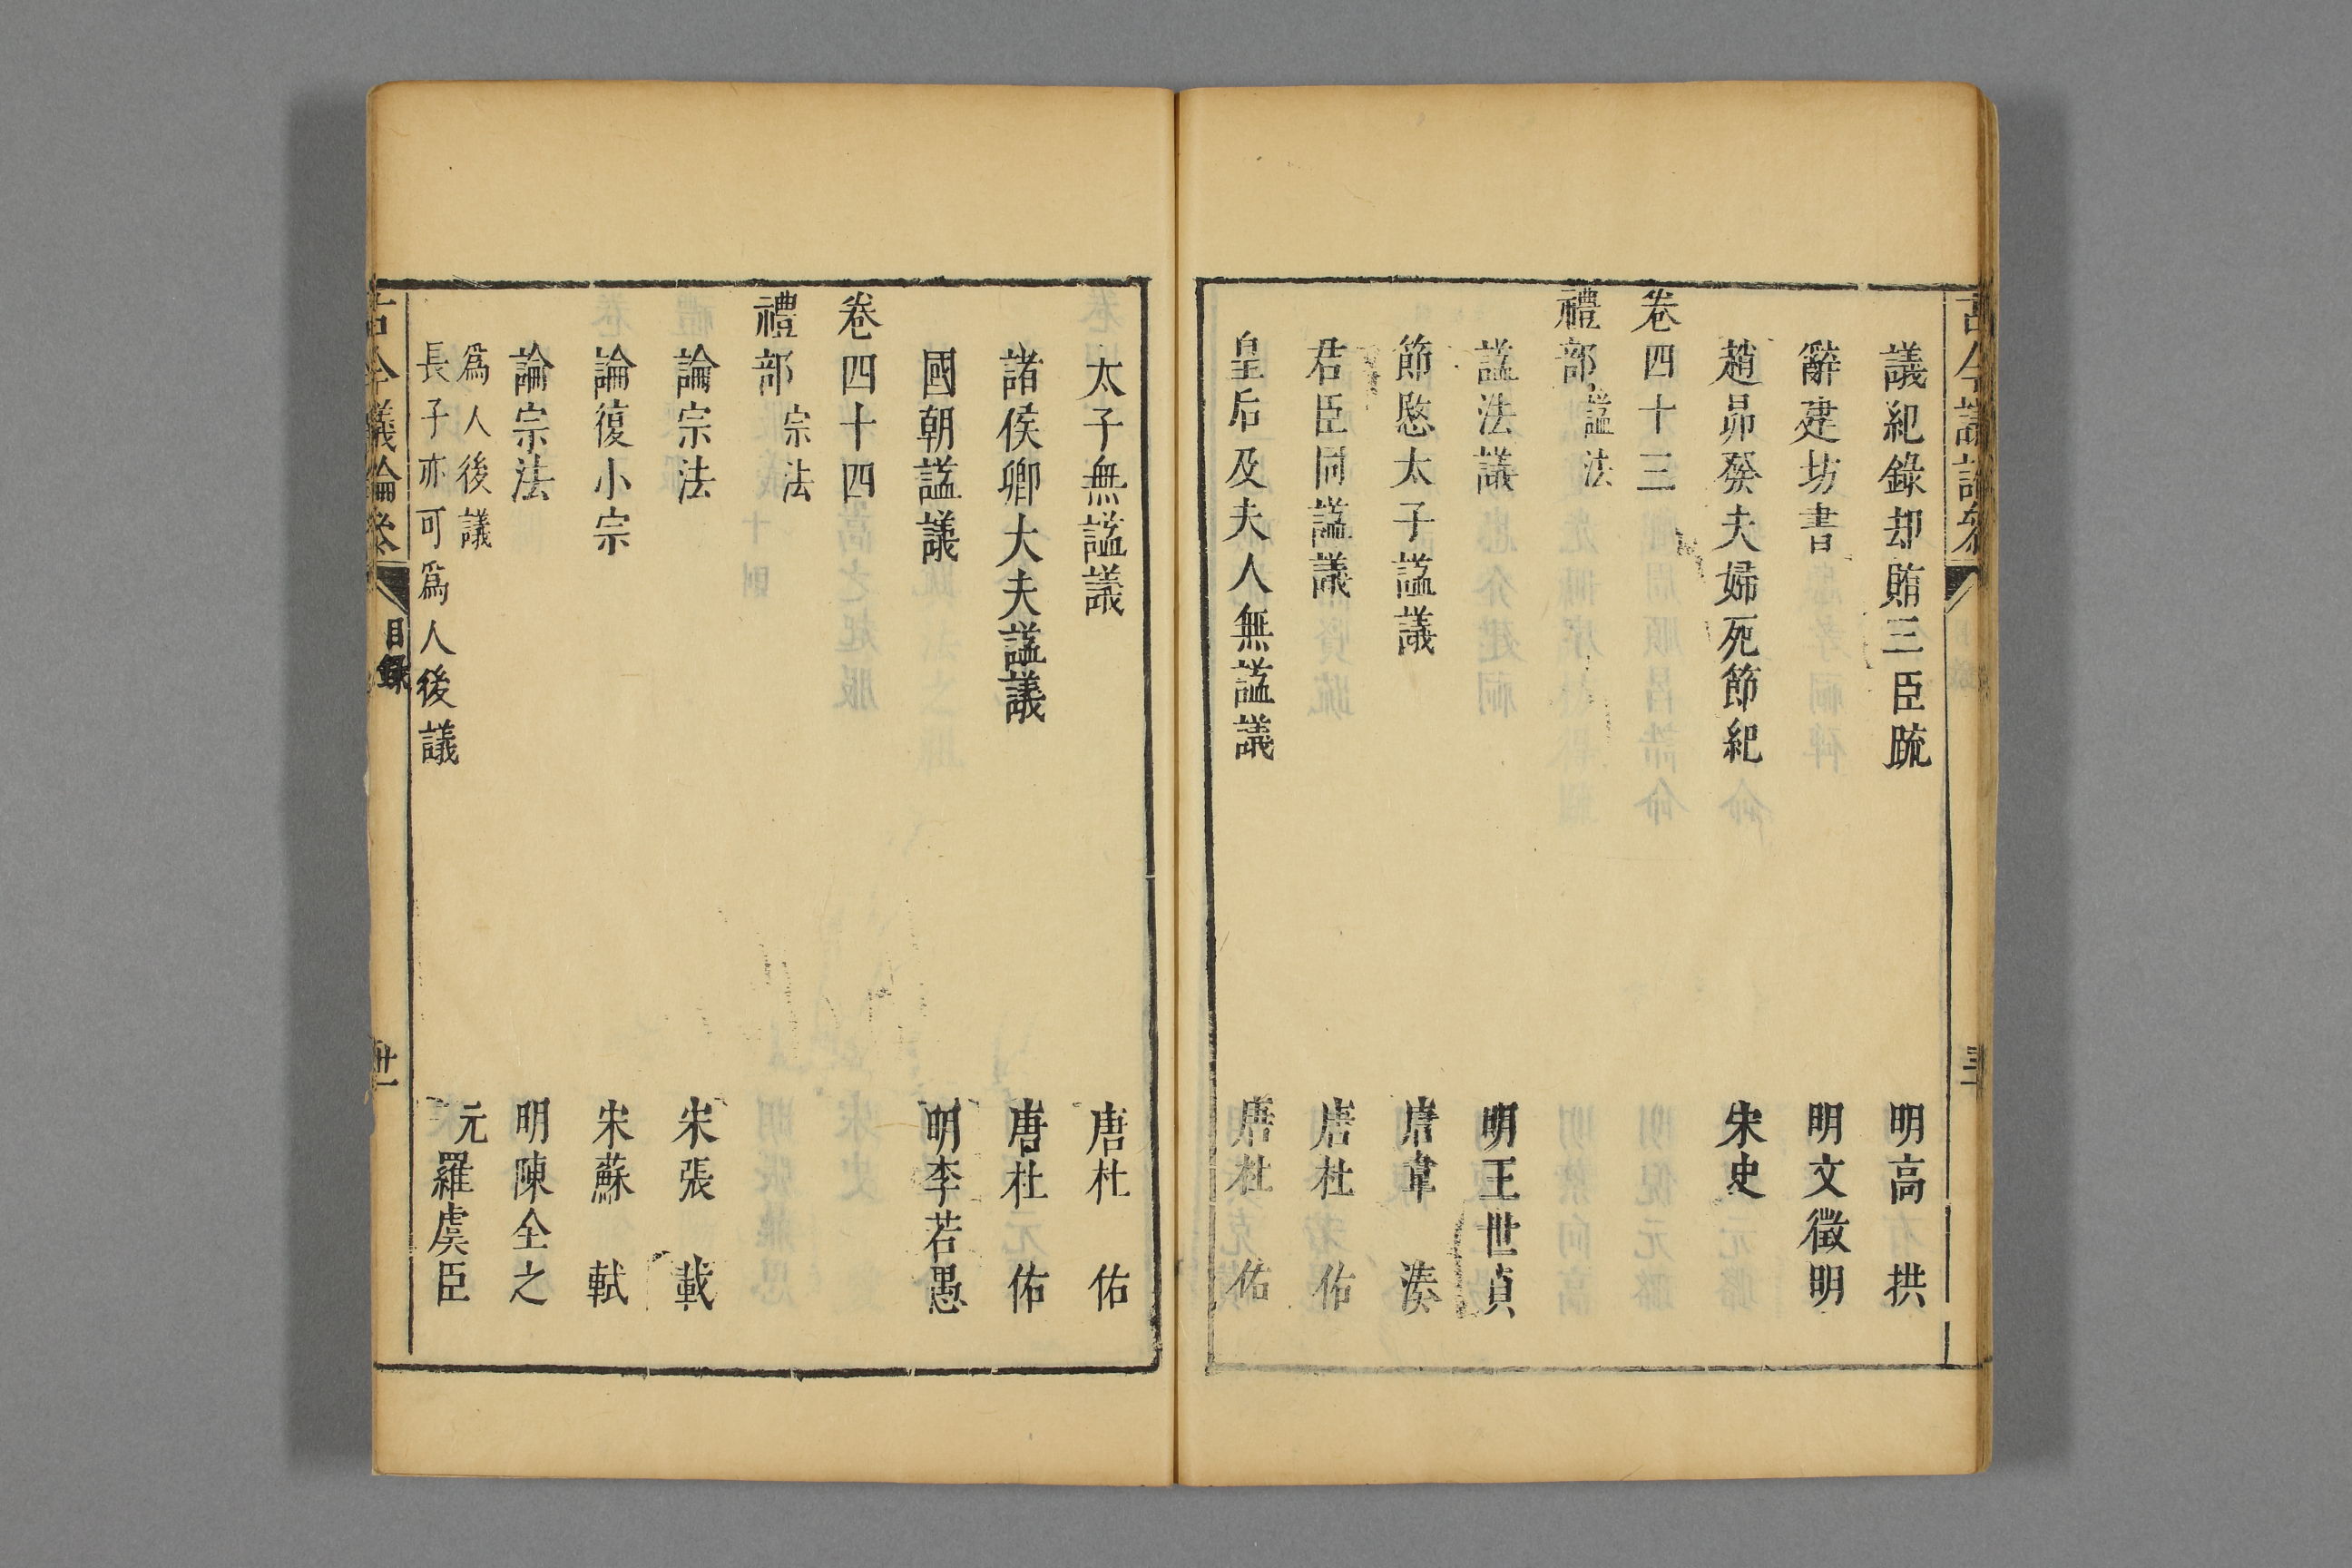 議紀錄却賄三臣疏　明高　拱
辭建坊書　明文徵明
趙昴發夫婦死節紀　宋史
卷四十三
禮部 諡法
諡法議　明王世貞
節愍太子諡議　唐韋　湊
君臣同諡議　唐杜　佑
皇后及夫人無諡議　唐杜　佑
太子無諡議　唐杜　佑
諸侯卿大夫諡議　唐杜　佑
國朝諡議　明李若愚
卷四十四
禮部 宗法
論宗法　宋張　載
論復小宗　宋蘇　軾
論宗法　明陳全之
爲人後議
長子亦可爲人後議　元羅虞臣
古今議論參　目錄　卅一